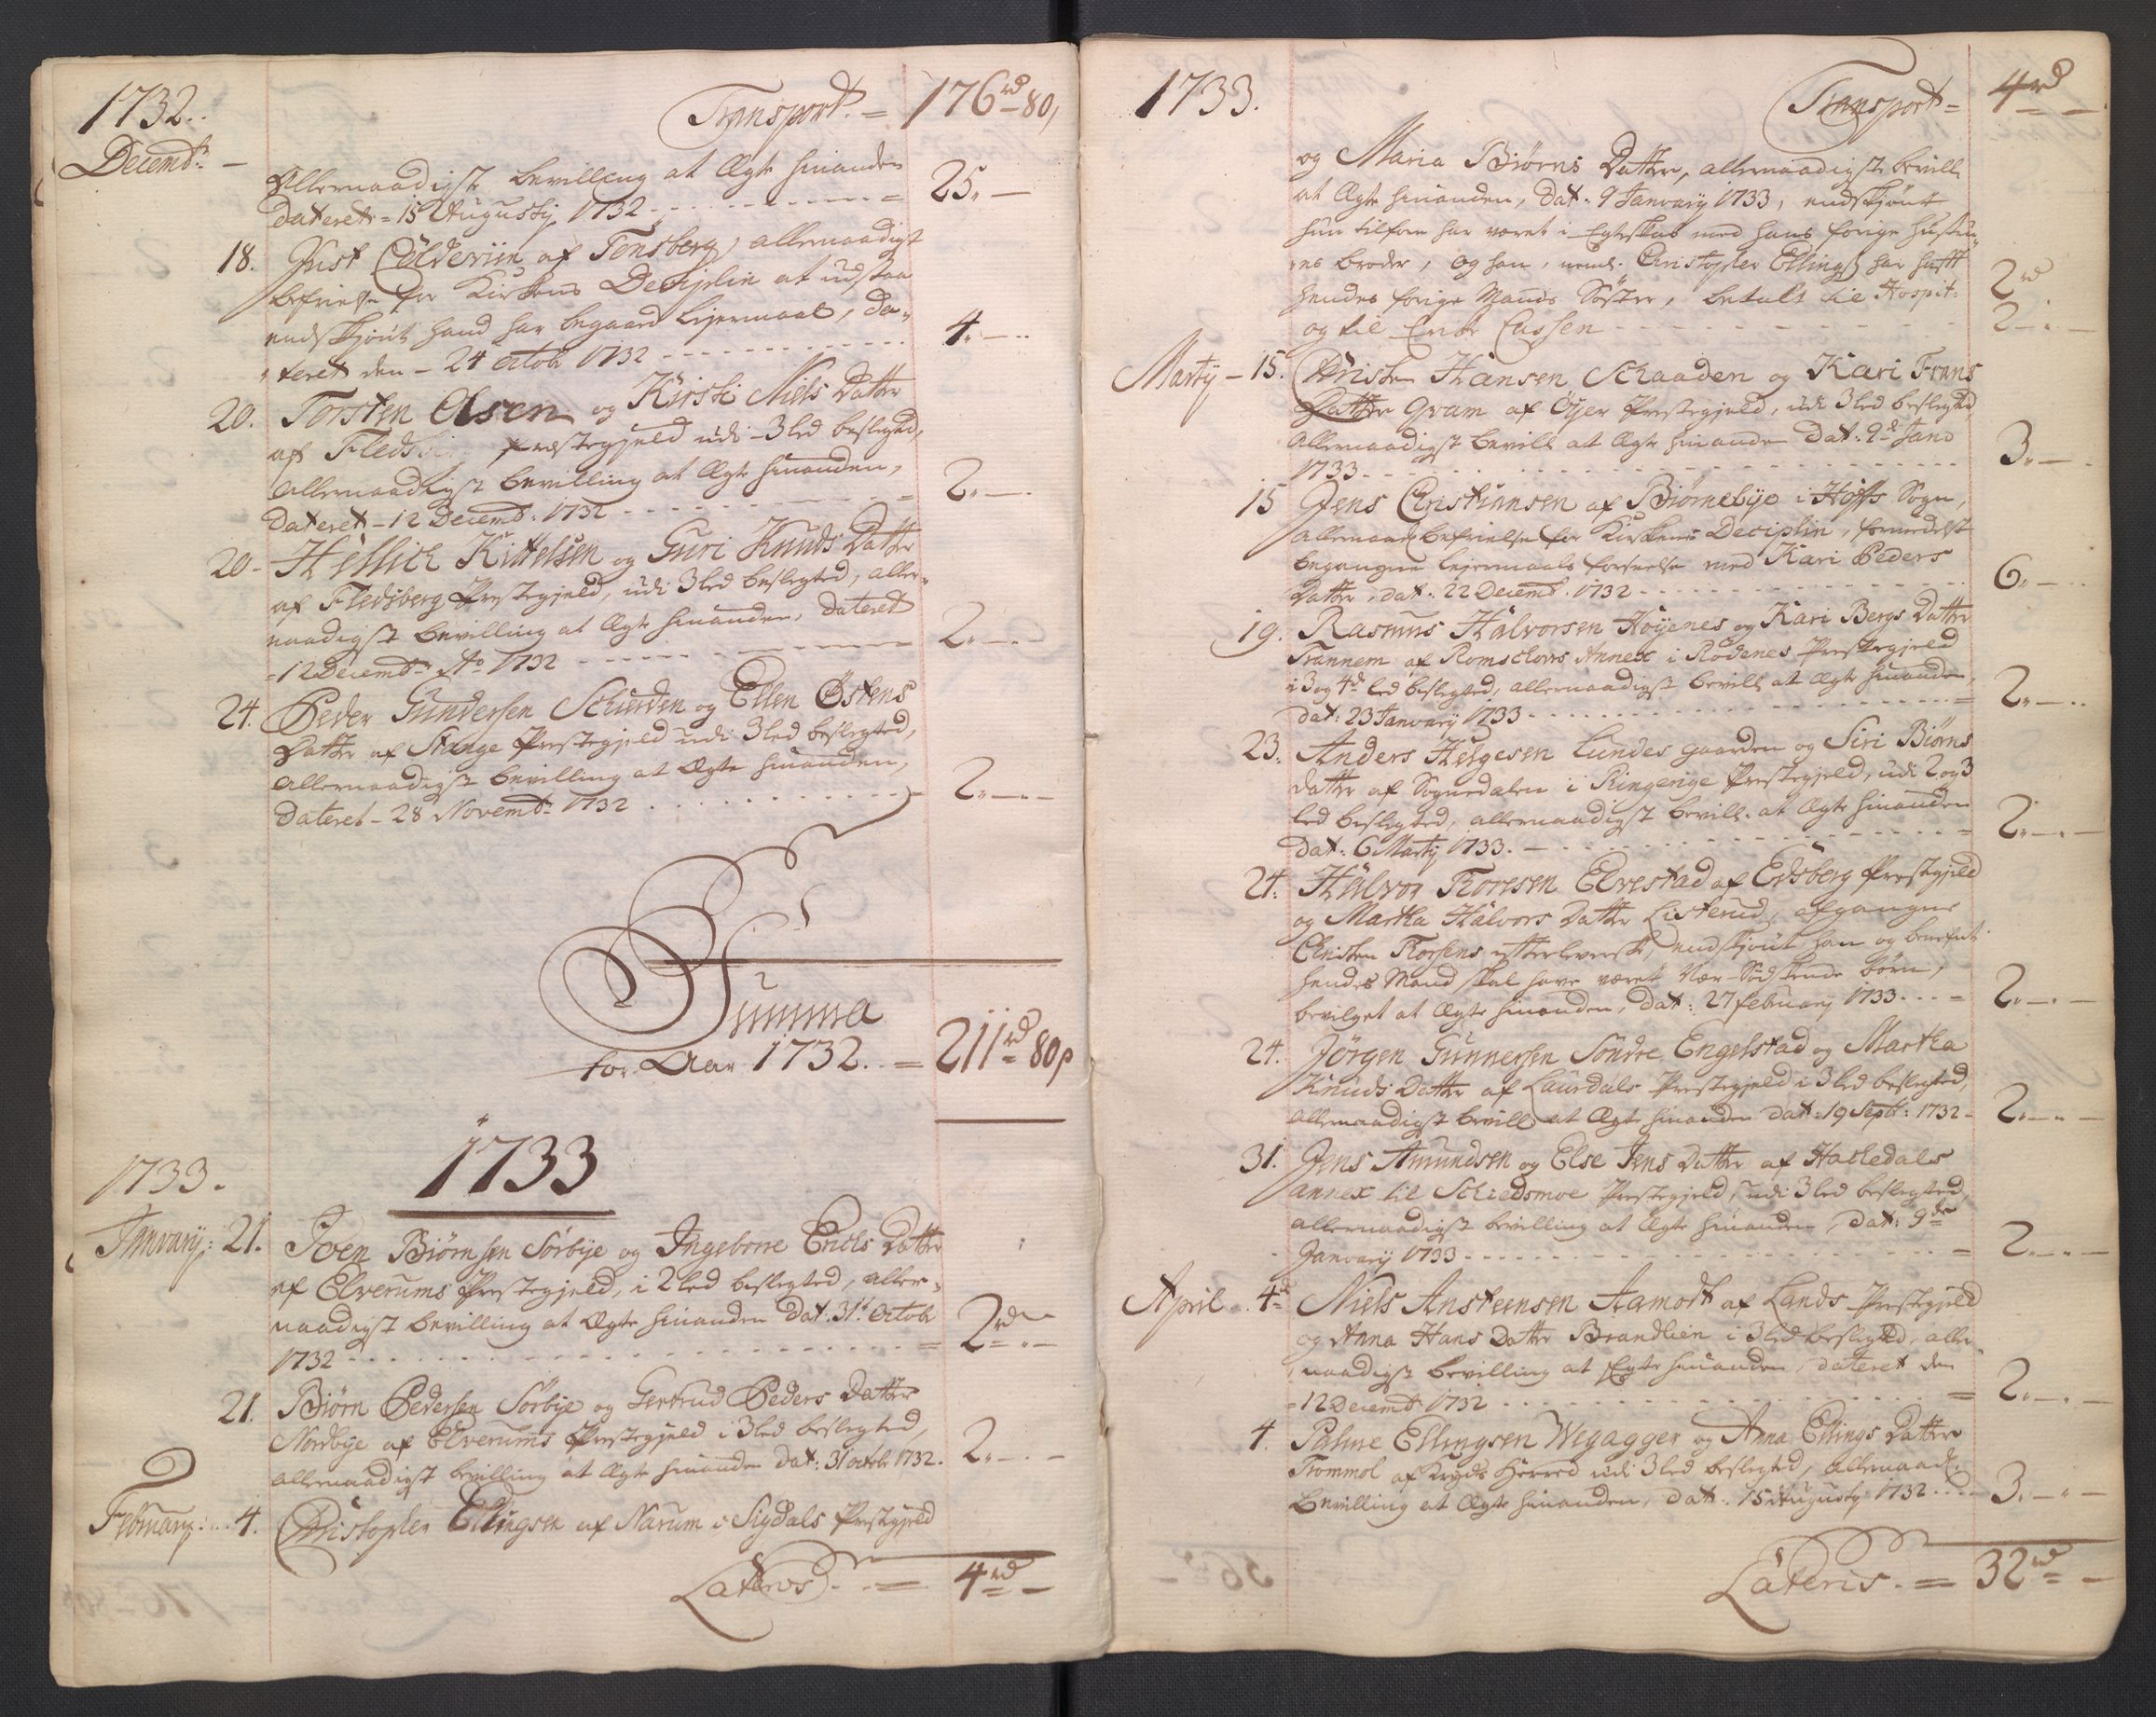 1732.
Transport. = 176 rd 80,
Decembr: –
Allernaadigste bevilling at Ægte hinanden
dateret = 15 Augustij 1732 = 25. —
18. Just Cölderüin af Tonsberg, allernaadigst
befrielse for Kirkens Deciplin at udstaa
endskjönt hand har begaaed Lejermaal, da-
teret den – 24 Octobr 1732 4. —
20. Torsten Olsen og Kirsti Niels Datter
af præstegjeld udi 3 led beslegted,
Allernaadigst bevilling at Ægte hinanden,
Dateret – 12 Decembr: 1732 2. —
20 – Hellich Kittelsen og Guri Knuds Datter
af Fledsberg Præstegjeld, udi 3 led beslegted, aller-
naadigst bevilling at Ægte hinanden, dateret
– 12 Decembr Ao 1732 2. —
24. Peder Gundersen Schierden og Ellen Østens
Datter af Stange Præstegjeld udi 3 led beslegted,
Allernaadigst bevilling at Ægte hinanden,
Dateret – 28 Novembr: 1732 2. —
Summa
for Aar 1732. = 211 rd 80 ß
1733
1733.
Januarij: 21. Joen Biörnsen Sörbye og Ingeborre Erichs Datter
af Elverums Præstegjeld, i 2 led beslegted, aller-
naadigst bevilling at Ægte hinanden dat. 31t Octobr
1732 = 2 rd —
21. Biörn Pedersen Sörbye og Gertrud Peders Datter
Nordbye af Elverums Præstegjeld i 3 led beslegted,
allernaadigst bevilling at Ægte hinanden dat: 31 octobr 1732. 2. —
Februarij: 4. Christopher Ellingsen af Narum i Sigdals Præstegjeld
Lateris = 4 rd —
1733.
Transport = 4 rd —
og Maria Biörns Datter, allernaadigste bevill:
at Ægte hinanden, dat. 9 Januarij 1733, endskjönt
hun tilforn har været i Egteskab med hans forige hustru-
es broder, og han, neml. Christopher Ellings: har hafft
hendes forige Mands Söster, betalt til Hospit: 2 rd
og til Enke Cassen 2 —
Martij – 15. Christen Hansen Schaaden og Kari Frans
Datter Qvam af Öyer Præstegjeld, udi 3 led beslegted
Allernaadigst bevill at Ægte hinanden dat: 9de Janu
1733 3. —
15 Jens Christiansen af Biörnebye i Hoffs Sogn,
allernaad. befrielse for Kirkens Deciplin, formedelst
begangne lejermaals forseelse med Kari Peders
Datter, dat: 22 Decemb. 1732 6. —
19. Rasmus Halvorsen Höyenes og Kari Bergs Datter
Trannem af Romschovs Annex i Rödenes Præstegjeld
i 3 og 4de led beslegted, allernaadigst bevill at Ægte hinanden,
dat: 23 Januarij 1733 = 2. —
23. Anders Helgesen Lundes gaarden og Siri Biörns
datter af Sognedalen i Ringerige Præstegjeld, udi 2 og 3
led beslegted, allernaadigst bevill. at Ægte hinanden
dat: 6 Martij 1733. = 2. —
24. Halvor Thoresen Elvestad af Edsberg Præstgjeld
og Martha Halvors Datter Listerud, afgangne
Christen Thorsens efterleverske, endskjönt han og benefnte
hendes Mand skal have været Nær-Södskende börn,
bevilget at Ægte hinanden, dat: 27 february 1733 = 2. —
24. Jörgen Gunnersen Söndre Engelstad og Martha
Knuds Datter af Laurdals Præstegjeld i 3 led beslegted,
allernaadigst bevill at Ægte hinanden dat: 19 Septt: 1732 2. —
31. Jens Amundsen og Else Jens Datter af Hackedals
annex til Schiedsmoe Præstegjeld, udi 3 led beslegted,
allernaadigst bevilling at Ægte hinanden, dat: 9de
Januarij 1733 = 2. —
April 4de Niels Ansteensen Aamodt af Lands Præstegjeld
og Anna Hans Datter Brandlien i 3 led beslegted, aller-
naadigst bevilling at Egte hinanden, dateret den
– 12 Decemb. 1732 = 2. —
4. Palme Ellingsen Wegagger og Anna Ellings Datter
Trommol af Kryds Herred udi 3 led beslegted, allernaad:
bevilling at Ægte hinanden, dat: 15 Augustij 1732 3. —
Lateris. = 32 rd —